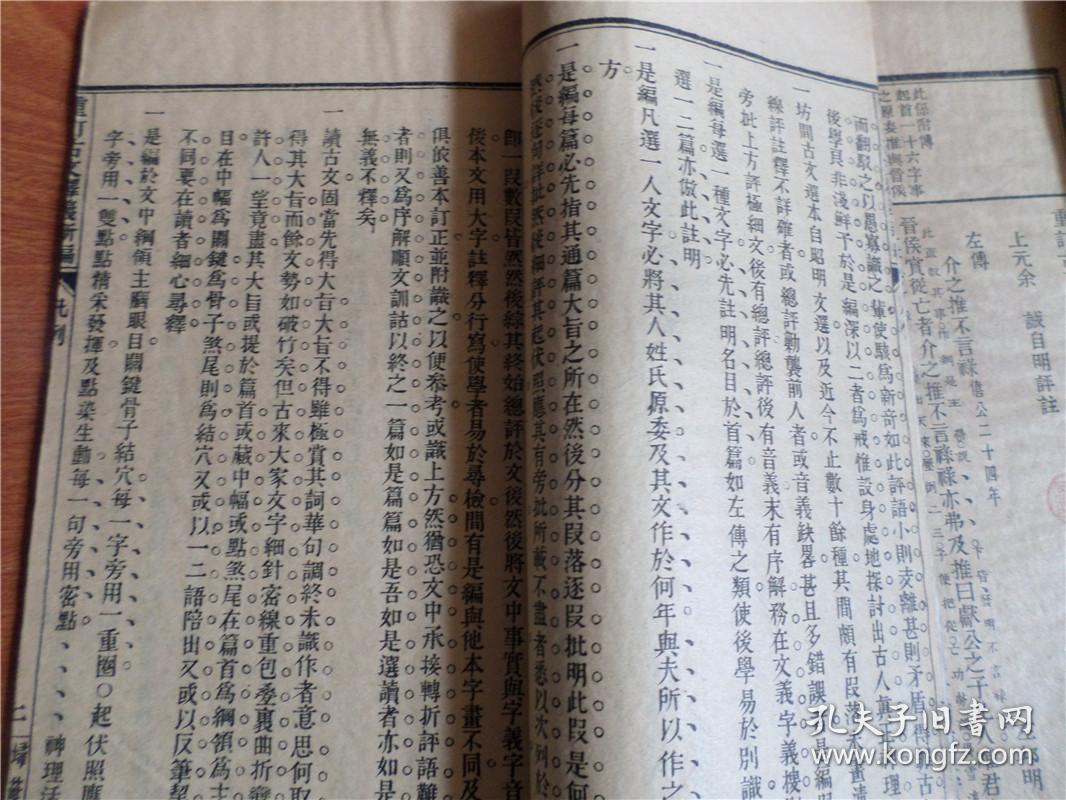 上元余 誠自明評註
左傳
介之推不言祿 僖公二十四年
晉侯賞從亡者介之推不言祿祿亦弗及推曰獻公之子九人 君
此係附傳
起首一十六字
而翻駁之以愚寡識之輩使駭為新奇如此評語小則支離甚則矛盾得
後學具非淺鮮予於是編深以二者為戒惟設身處地探討出古人
一坊間古文選本自昭明文選以及近今不止數十餘種其間頗有段落
線評註釋不詳確者或總評勦襲前人者或音義缺畧甚且多錯誤是編
旁批上方評極細文後有總評總評後有音義末有序解務在文義字義
一是編每選一種文字必先註明名目於首篇如左傳之類使後學易於別識
選一二篇亦倣此註明
一是編凡選一人文字必將其人姓氏原委及其文作於何年與夫所以作之
方
一是編每篇必先指其通篇大旨之所在然後分其段落逐段批明此段是何
然後逐句詳批然後細評其起伏照應其有旁批所載不盡者悉以次列於
即一段數段皆然然後綜其終始總評於文後然後將文中事實與字義字音
後本文用大字註釋分行寫使學者易於尋檢間有是編與他本字畫不同及
俱依善本訂正並附識之以便叅考或識上方然猶恐文中承接轉折評語難
者則又為序解順文訓詁以終之一篇如是篇篇如是吾如是選讀者亦如是
無義不釋矣
一讀古文固當先得大旨大旨不得雖極賞其詞華句調終未識作者意思何取
得其大旨而餘文勢如破竹矣但古來大家文字細針密線重包叠裏曲折變
許人一望竟盡其大旨或提於篇首或藏中幅或點煞尾在篇首為綱領為主
目在中幅為關鍵為骨子煞尾則為結穴又或以一二語陪出又或以反筆挈
不同要在讀者細心尋釋
一是編於文中綱領主腦眼目關鍵骨子結穴每一字旁用一重圈起伏照應
字旁用一雙點點精采發揮及點染生動每一句旁用密點 神理活
重訂古文釋義新編 凡例 二
孔夫子旧书网
www.kongfz.com